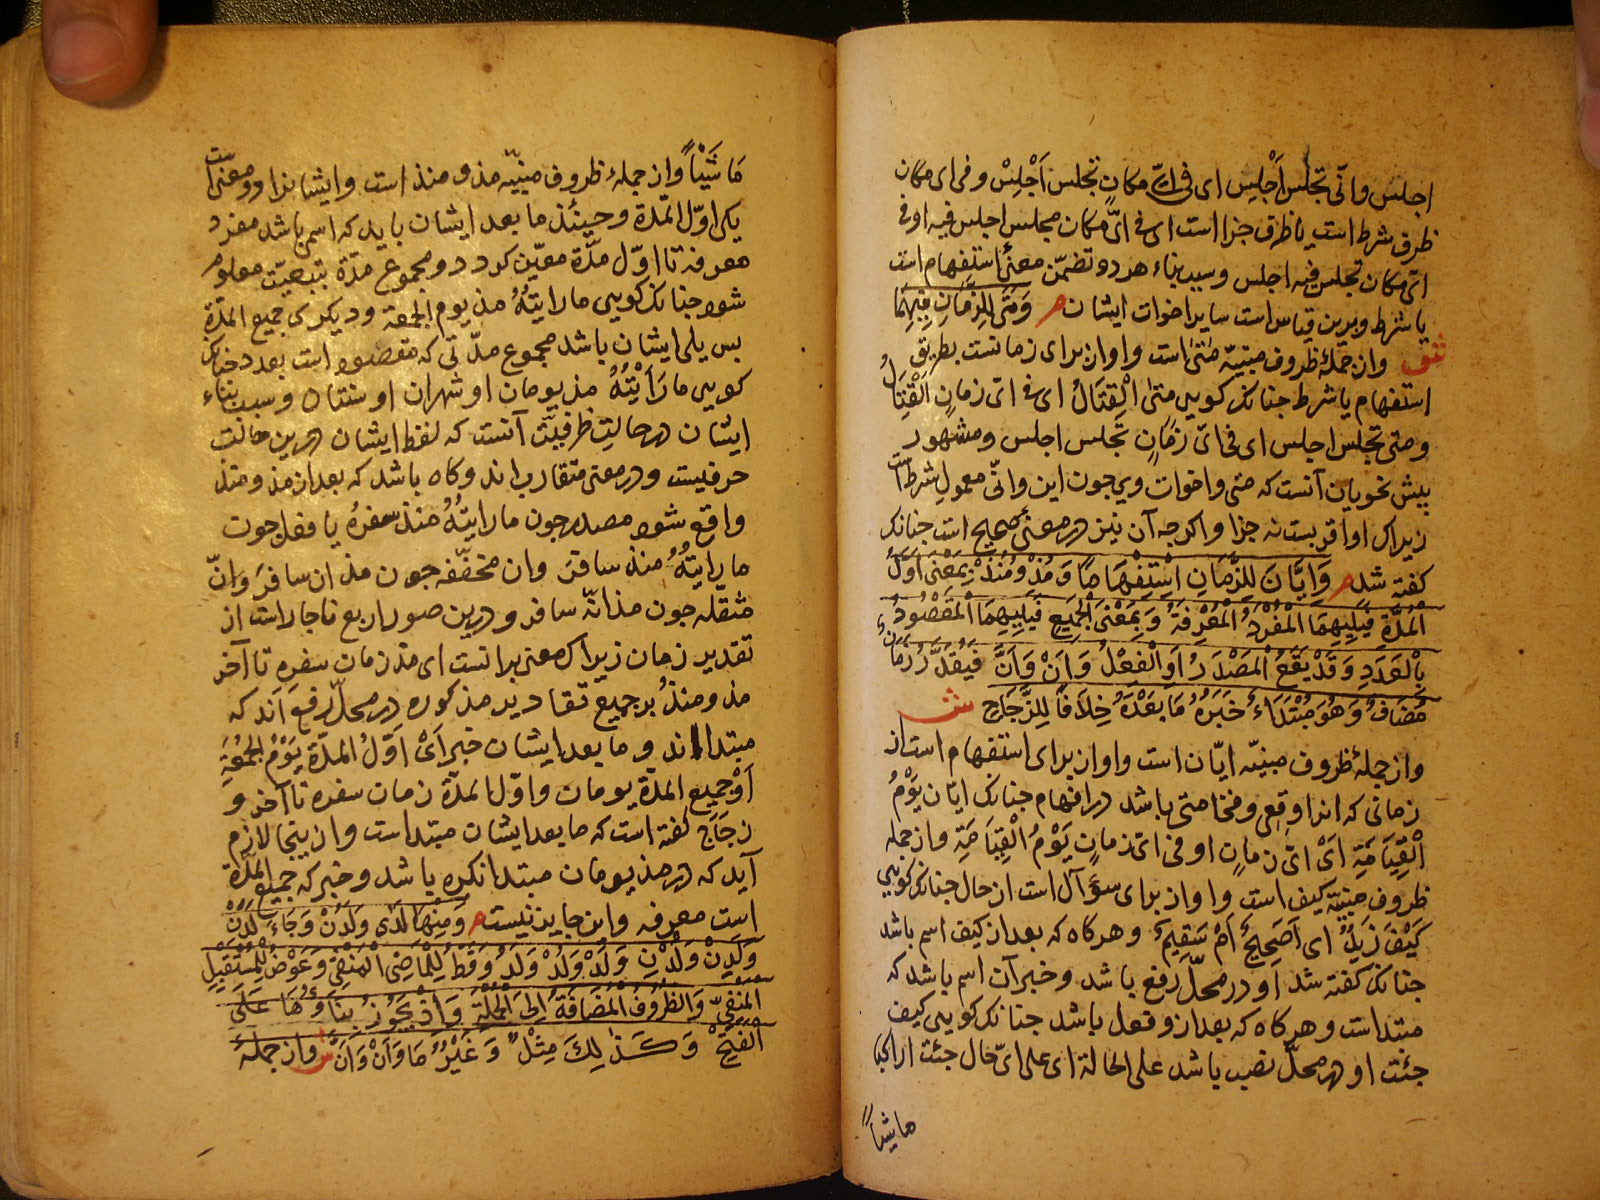 اجلس وانّی تجلس اجلس ای فی ایّ مکانٍ تجلس اَجْلِسْ و فی ای مکان
ظرف شرط است یا ظرف جزا است ای فی ایّ مکان تجلس اجلس فیه او فی
ایّ مکان تجلس فیه اجلس و سبب بناء هر دو تضمّن معنیٔ استفهام است
یا شرط و برین قیاس است سایر اخوات ایشان م وَمَتیٰ لِلزَّمَانِ فِیهِمَا
ش وازجملهٔ ظروف مبنیّه مَتیٰ است و او از برای زمانست بطریق
استفهام یا شرط جنانک کویی متیٰ الْقِتَالُ ای فی ایّ زمانٍ الْقِتَالُ
و متی تجلس اجلس ای فی ایّ زمانٍ تجلس اجلس و مشهور
پیش نحویان آنست که متی و اخوات وی جون این و انّی معمول شرط است
زیراک او اقربست نه جزا و اکرجه آن نیز در معنی صحیح است جنانک
کفته شد م وَاَیَّانَ لِلزَّمَانِ اِسْتِفْهَامًا وَمُذْ وَمُنْذُ بِمَعْنَی اَوَّلِ
الْمُدَّةِ فَیَلِیهِمَا الْمُفْرَدُ الْمَعْرِفَةُ وَبِمَعْنَی الْجَمِیعِ فَیَلِیهِمَا الْمَقْصُودُ
بِالْعَدَدِ وَقَدْ یَقَعُ الْمَصْدَرُ اَوِ الْفِعْلُ وَاَنْ وَاَنَّ فَیُقَدَّرُ زَمَانٌ
مُضَافٌ وَهُوَ مُبْتَدَاءٌ خَبَرُهُ مَا بَعْدَهُ خِلَافًا لِلزَّجَّاجِ ش
وازجملهٔ ظروف مبنیّه ایّان است و او از برای استفهام است از
زمانی که اندا وقعی و فخامتی باشد در افهام جنانک ایّان یَوْمُ
الْقِیَامَةِ اَیْ ایّ زمانٍ او فی ایّ زمانٍ یَوْمُ الْقِیَامَةِ وازجمله
ظروف مبنیّه کیف است و او از برای سؤال است از حال جنانک کویی
کَیْفَ زَیْدٌ ای اَصَحِیحٌ اَمْ سَقِیمٌ و هرکاه که بعد از کیف اسم باشد
جنانک کفته شد او در محلّ رفع باشد و خبر آن اسم باشد که
مبتداست و هرکاه که بعد ازو فعل باشد جنانک کویی کیف
جئت او در محلّ نصب باشد علی الحالة ای علی ایّ حال جئت اراکبا
ماشیاً
مَاشِیًا وازجملهٔ ظروف مبنیّه مذ و منذ است و ایشانرا دو معنی است
یکی اوّل المدّة و حینئذ ما بعد ایشان باید که اسمی باشد مفرد
معرفه تا اوّل مدّة معیّن کردد و مجموع مدّة بتبعیّت معلوم
شود جنانک کویی ما رایتُهُ مذ یوم الجمعة و دیکری جمیع المدّة
پس یلی ایشان باشد مجموع مدّتی که مقصود است بعدد جنانک
کویی ما رَاَیْتُهُ مذ یومان او شهران او سنتان و سبب بناء
ایشان در حالت ظرفیّت آنست که لفظ ایشان درین حالت
حرفیست و در معنی متقارب اند و کاه باشد که بعد از مذ و منذ
واقع شود مصدر جون ما رایتُهُ منذ سفرهُ یا فعل جون
ما رایتُهُ منذ سافرَ و ان مخفّفه جون مذ ان سافرَ و انّ
مثقله جون مذ انّه سافر و درین صور اربع ناجار است از
تقدیر زمان زیراک معنی برانست ای مذ زمان سفره تا آخر
مذ و منذُ بر جمیع تقادیر مذکوره در محلّ رفع اند که
مبتدااند و ما بعد ایشان خبر اَیْ اَوَّلُ المدّة یَوْمُ الجمُعَةِ
اَوْ جمیع المدّة یومان و اوّل المدّة زمان سفره تا آخر و
زجّاج کفته است که ما بعد ایشان مبتداست و ازینجا لازم
آید که در مذ یومان مبتدا نکره باشد و خبر که جمیع المدّة
است معرفه و این جایز نیست م وَمِنْهَا لَدَی وَلَدُنْ وَجَاءَ لَدْنِ
وَلَدِنْ وَلُدْنِ وَلَدْ وَلُدْ وَلَدُ وَقَطُّ لِلْمَاضِی الْمَنْفِیِّ وَعَوْضُ لِلْمُسْتَقْبَلِ
الْمَنْفِیِّ وَالظُّرُوفُ الْمُضَافَةُ اِلَی الْجُمْلَةِ وَاِذْ یَجُوزُ بِنَاؤُهَا عَلَی
الْفَتْحِ وَکَذٰلِكَ مِثْلُ وَغَیْرُ مَا وَاَنْ وَاَنَّ ش وازجملهٔ